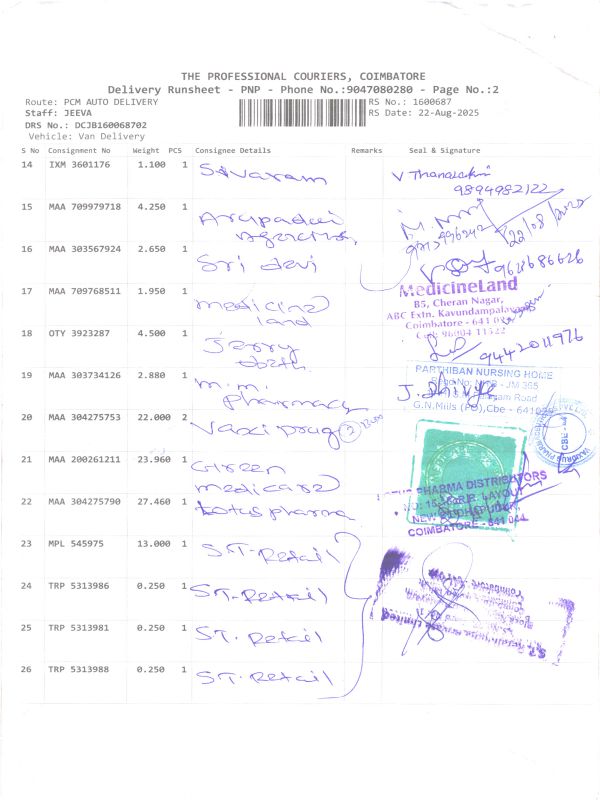 THE PROFESSIONAL COURIERS, COIMBATORE
Delivery Runsheet - PNP - Phone No.:9047080280 - Page No.:2
Route: PCM AUTO DELIVERY
RS No.: 1600687
Staff: JEEVA
RS Date: 22-Aug-2025
DRS No.: DCJB160068702
Vehicle: Van Delivery
S No Consignment No Weight PCS Consignee Details Remarks Seal & Signature
14 IXM 3601176 1.100 1 Sivaram V Thanalakshmi
9894982122
15 MAA 709979718 4.250 1 Arupadai
Agencies, 22/08/2025
16 MAA 303567924 2.650 1 Sri devi 9626686626
17 MAA 709768511 1.950 1 medicine
land
MedicineLand
B5, Cheran Nagar,
ABC Extn. Kavundampalayam
Coimbatore - 641 0
Cell: 96004 11522
18 OTY 3923287 4.500 1 Jerry
9442011976
19 MAA 303734126 2.880 1 m.m.
pharmacy
J. Dhivya
PARTHIBAN NURSING HOME
JM 365
Road
G.N.Mills (PO),Cbe - 6410
20 MAA 304275753 22.000 2 2 Box
CBE
21 MAA 200261211 23.960 1 Green
medicare
22 MAA 304275790 27.460 1 Lotus pharma
PHARMA DISTRIBUTORS
LAYOUT
NEW SIDDHAPUDUR
COIMBATORE - 641 044
23 MPL 545975 13.000 1 S.T-Retail
24 TRP 5313986 0.250 1 ST-Retail
25 TRP 5313981 0.250 1 ST-Retail
26 TRP 5313988 0.250 1 ST-Retail
Limited
Coimbatore